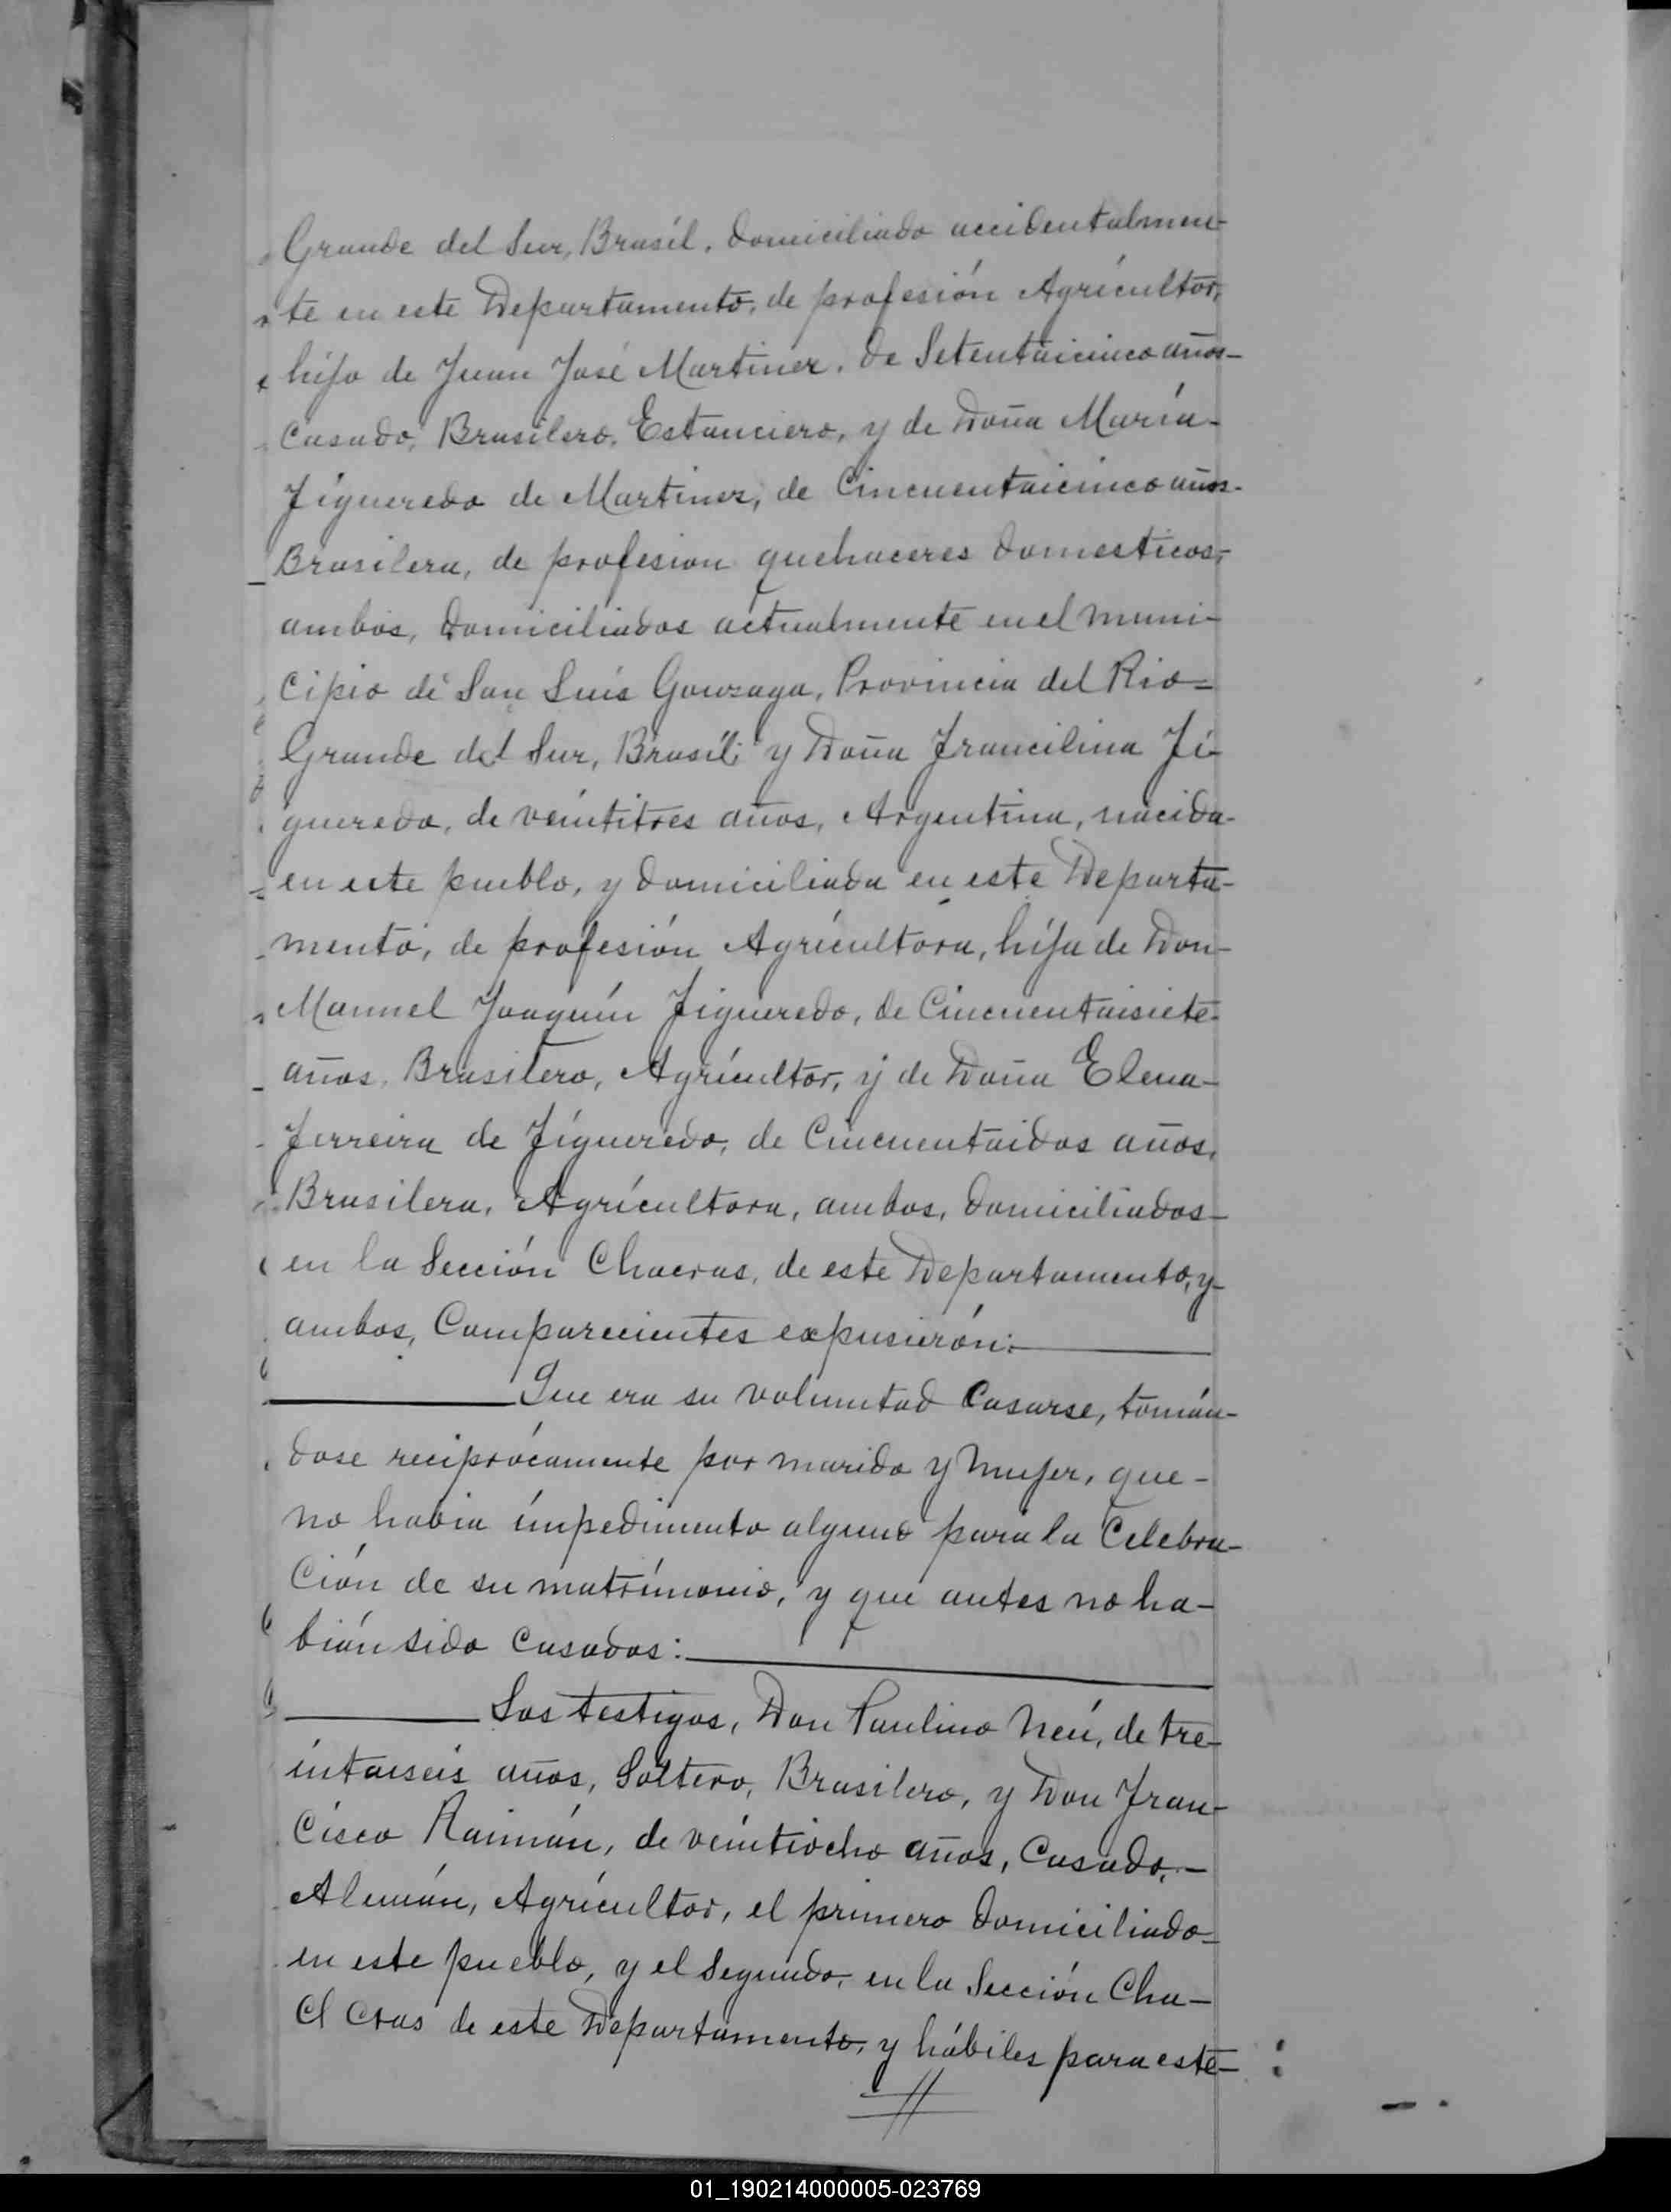 Grande del Sur, Brasíl, domiciliado accidentalmen-
te en este Departamento, de profesión Agrícultor,
híjo de Juan José Martinez, de Setentaicinco años-
Casado, Brasílero, Estanciero, y de Doña María-
Fígueredo de Martinez, de Cincuentaicinco años-
Brasilera, de profesion quehaceres domesticos,-
ambos, domiciliados actualmente en el muni-
cipio de San Luís Gonzaga, Provincia del Rio=
Grande del Sur, Brasíl; y Doña Francilina Fí-
gueredo, de veintitres años, Argentina, nacida-
en este pueblo, y domiciliada en este Departa-
mento, de profesión Agrícultora, híja de Don-
Manuel Joaquín Figueredo, de Cincuentaisiete-
años, Brasilero, Agrícultor, y de Doña Elena-
Ferreira de Fígueredo, de Cincuentaidos años,
Brasilera, Agrícultora, ambos, domiciliados-
en la Sección Chacras, de este Departamento, y-
ambos, Comparecientes expusierón:
Que era su voluntad Casarse, tomán-
dose reciprócamente por marido y mujer, que-
no habia impedimento alguno para la Celebra-
ción de su matrímonio, y que antes no ha-
bían sido Casados:
Los testigos, Don Paulino Neú, de tre-
intaiseis años, Soltero, Brasilero, y Don Fran-
císco Raimán, de veintiocho años, Casado,-
Alemán, Agrícultor, el primero domiciliado-
en este pueblo, y el Segundo, en la Sección Cha-
cras de este Departamento, y hábiles para este-
//
01_190214000005-023769